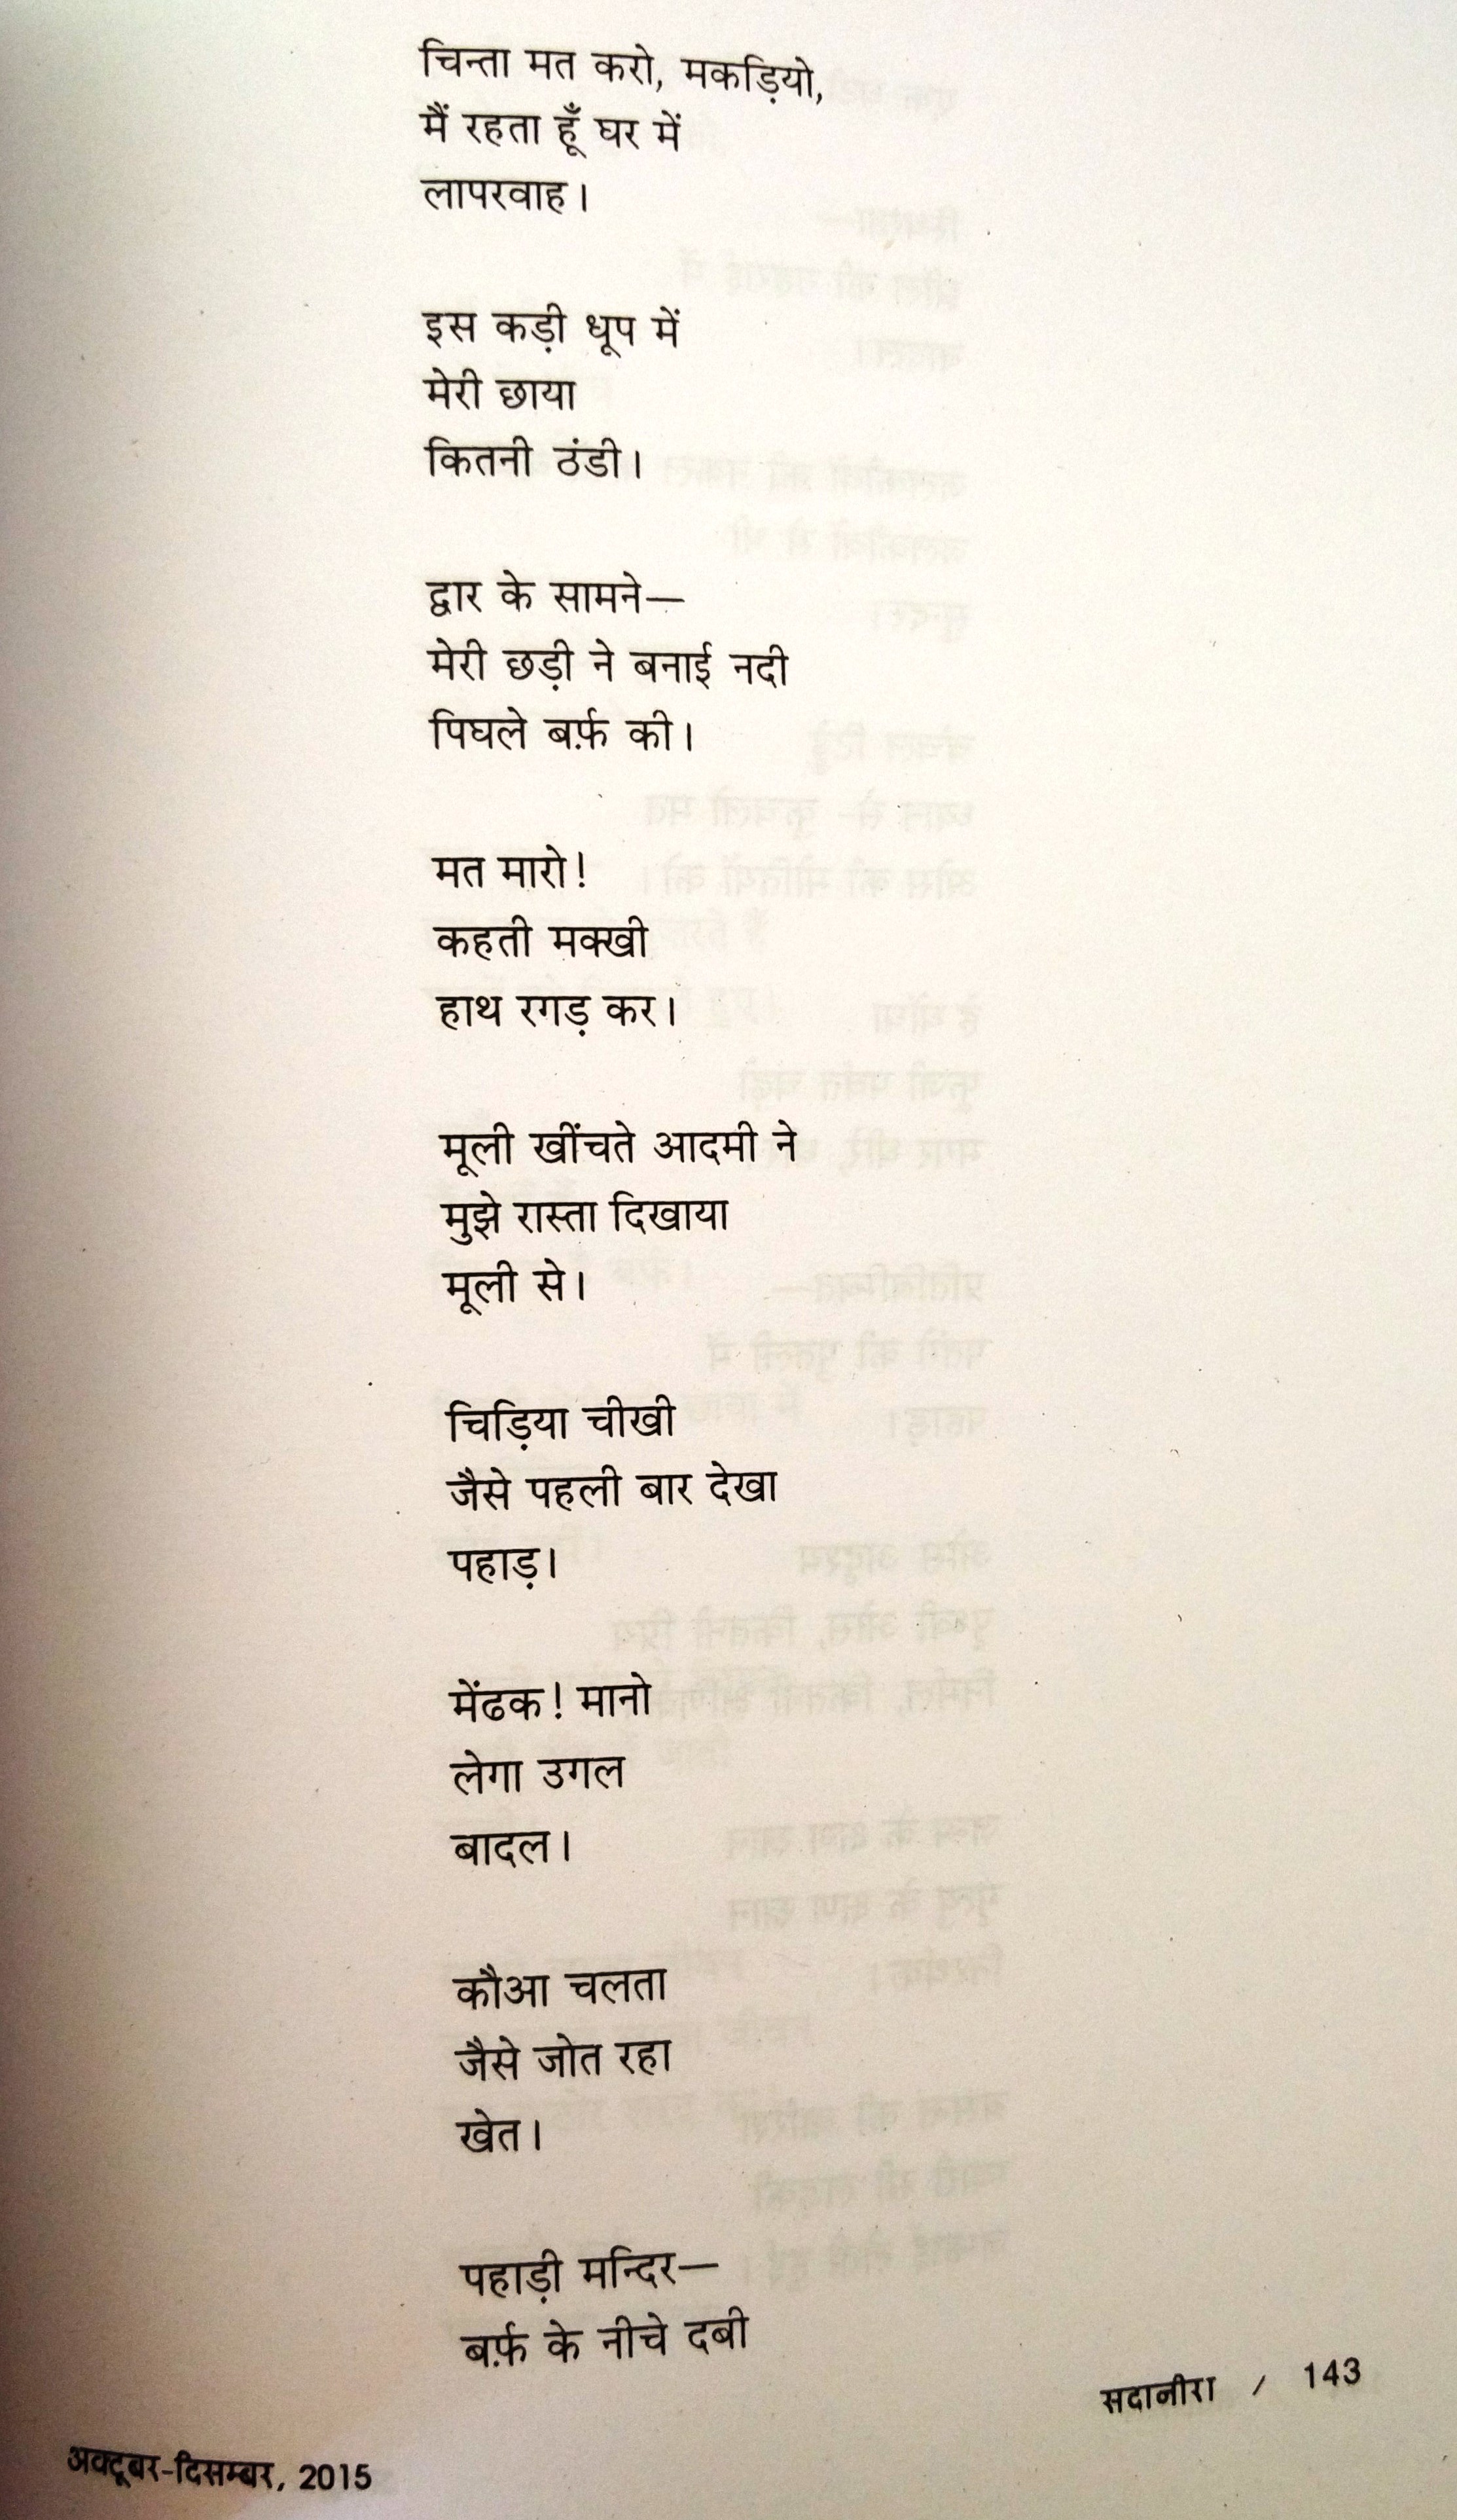 चिन्ता मत करो, मकड़ियो,
मैं रहता हूँ घर में
लापरवाह।
इस कड़ी धूप में
मेरी छाया
कितनी ठंडी।
द्वार के सामने—
मेरी छड़ी ने बनाई नदी
पिघले बर्फ़ की।
मत मारो!
कहती मक्खी
हाथ रगड़ कर।
मूली खींचते आदमी ने
मुझे रास्ता दिखाया
मूली से।
चिड़िया चीखी
जैसे पहली बार देखा
पहाड़।
मेंढक! मानो
लेगा उगल
बादल।
कौआ चलता
जैसे जोत रहा
खेत।
पहाड़ी मन्दिर—
बर्फ़ के नीचे दबी
सदानीरा / 143
अक्टूबर-दिसम्बर, 2015